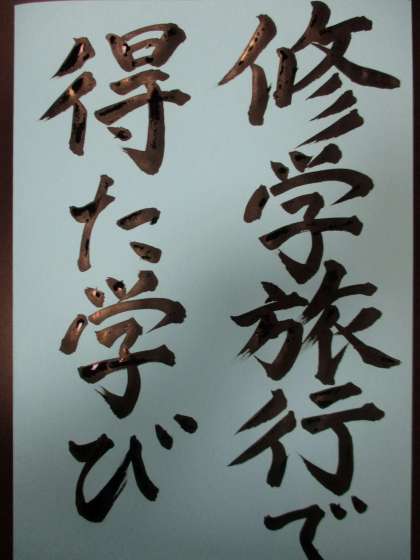 修学旅行で
得た学び